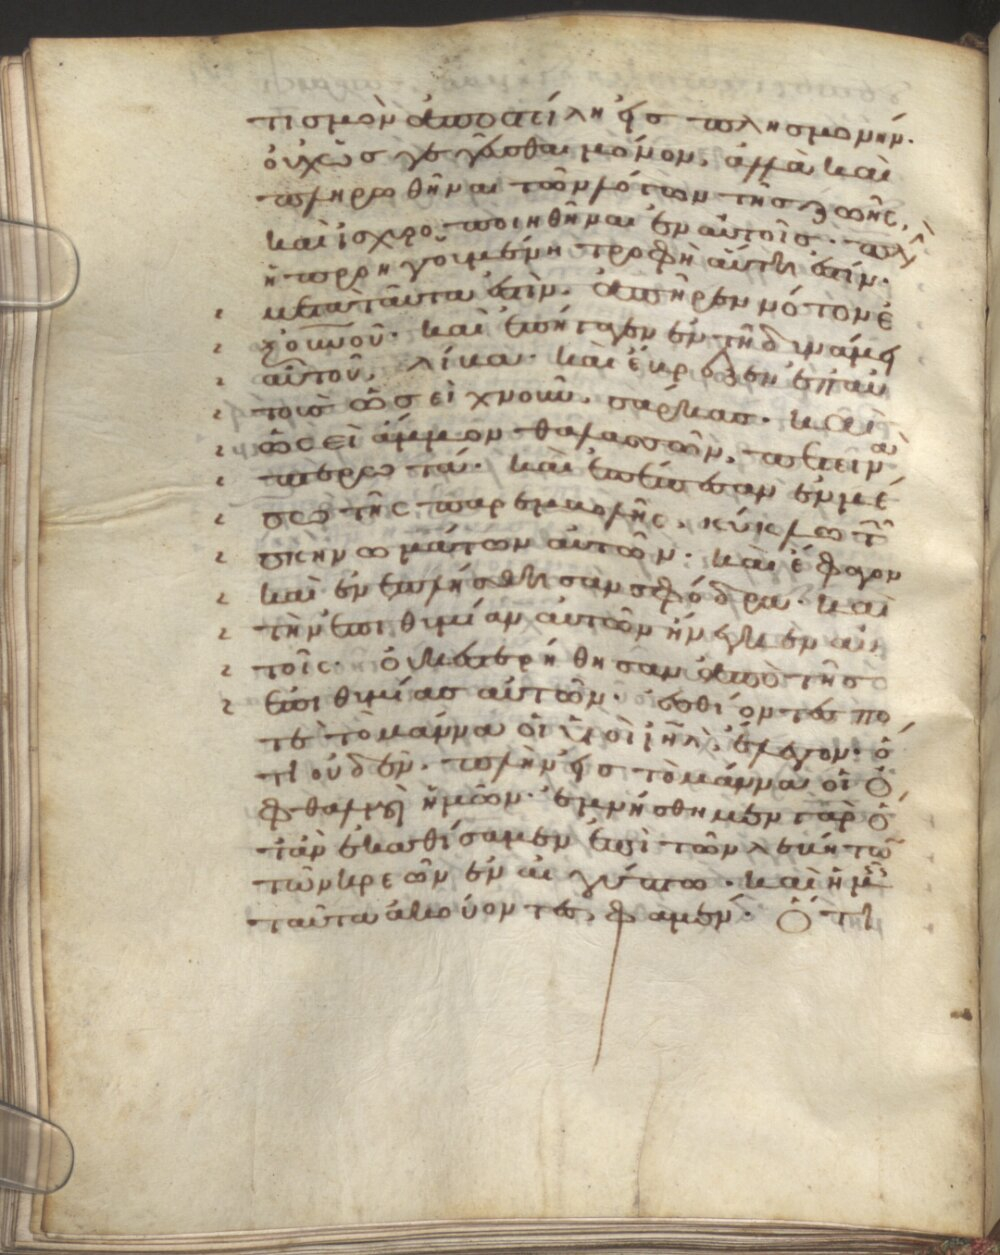 τισμὸν ἀποστείλη εἰς πλησμονήν.
οὐχ ὡς γεύσασθαι μόνον, ἀλλὰ καὶ
πληρωθῆναι τῶν λόγων τῆς ζωῆς,
καὶ ἰσχυροποιηθῆναι ἐν αὐτοῖς.
ἡ προηγουμένη τροφὴ αὕτη ἐστίν.
μετὰ ταῦτα ἐστίν. ἀπῆρεν νότον ἐ
ξ οὐνοῦ. καὶ ἐπήγαγεν ἐν τῆ δυνάμει
αὐτοῦ, λίβα. καὶ ἔβρεξεν ἐπ αὐ
τοὺς ὡσεὶ χνοῦν, σάρκας. καὶ
ὡσεὶ ἄμμον θαλασσῶν, πετεινὰ
πτερωτά. καὶ ἐπέπεσαν ἐν μέ
σω τῆς παρεμβολῆς, κύκλω τῶ
σκηνωμάτων αὐτῶν. καὶ ἔφαγον
καὶ ἐνεπλήσθησαν σφόδρα. καὶ
τὴν ἐπιθυμίαν αὐτῶν ἤνεγκεν αὐ
τοῖς. οὐκ ἐστερήθησαν ἀπὸ τῆς
ἐπιθυμίας αὐτῶν. ἐσθίοντές πο
τε τὸ μάννα οἱ υἱοὶ ιηλ, ἔλεγον. ὅ
τι οὐδὲν. πλὴν εἰς τὸ μάννα οἱ ὀ
φθαλμοὶ ἡμῶν. ἐμνήσθημεν γὰρ ὅ
τὰν ἐκαθίσαμεν ἐπὶ τῶν λεβήτω
τῶν κρεῶν ἐν αἰγύπτω. καὶ ἡμεῖς
ταῦτα ἀκούοντες, φαμέν. ὅτι